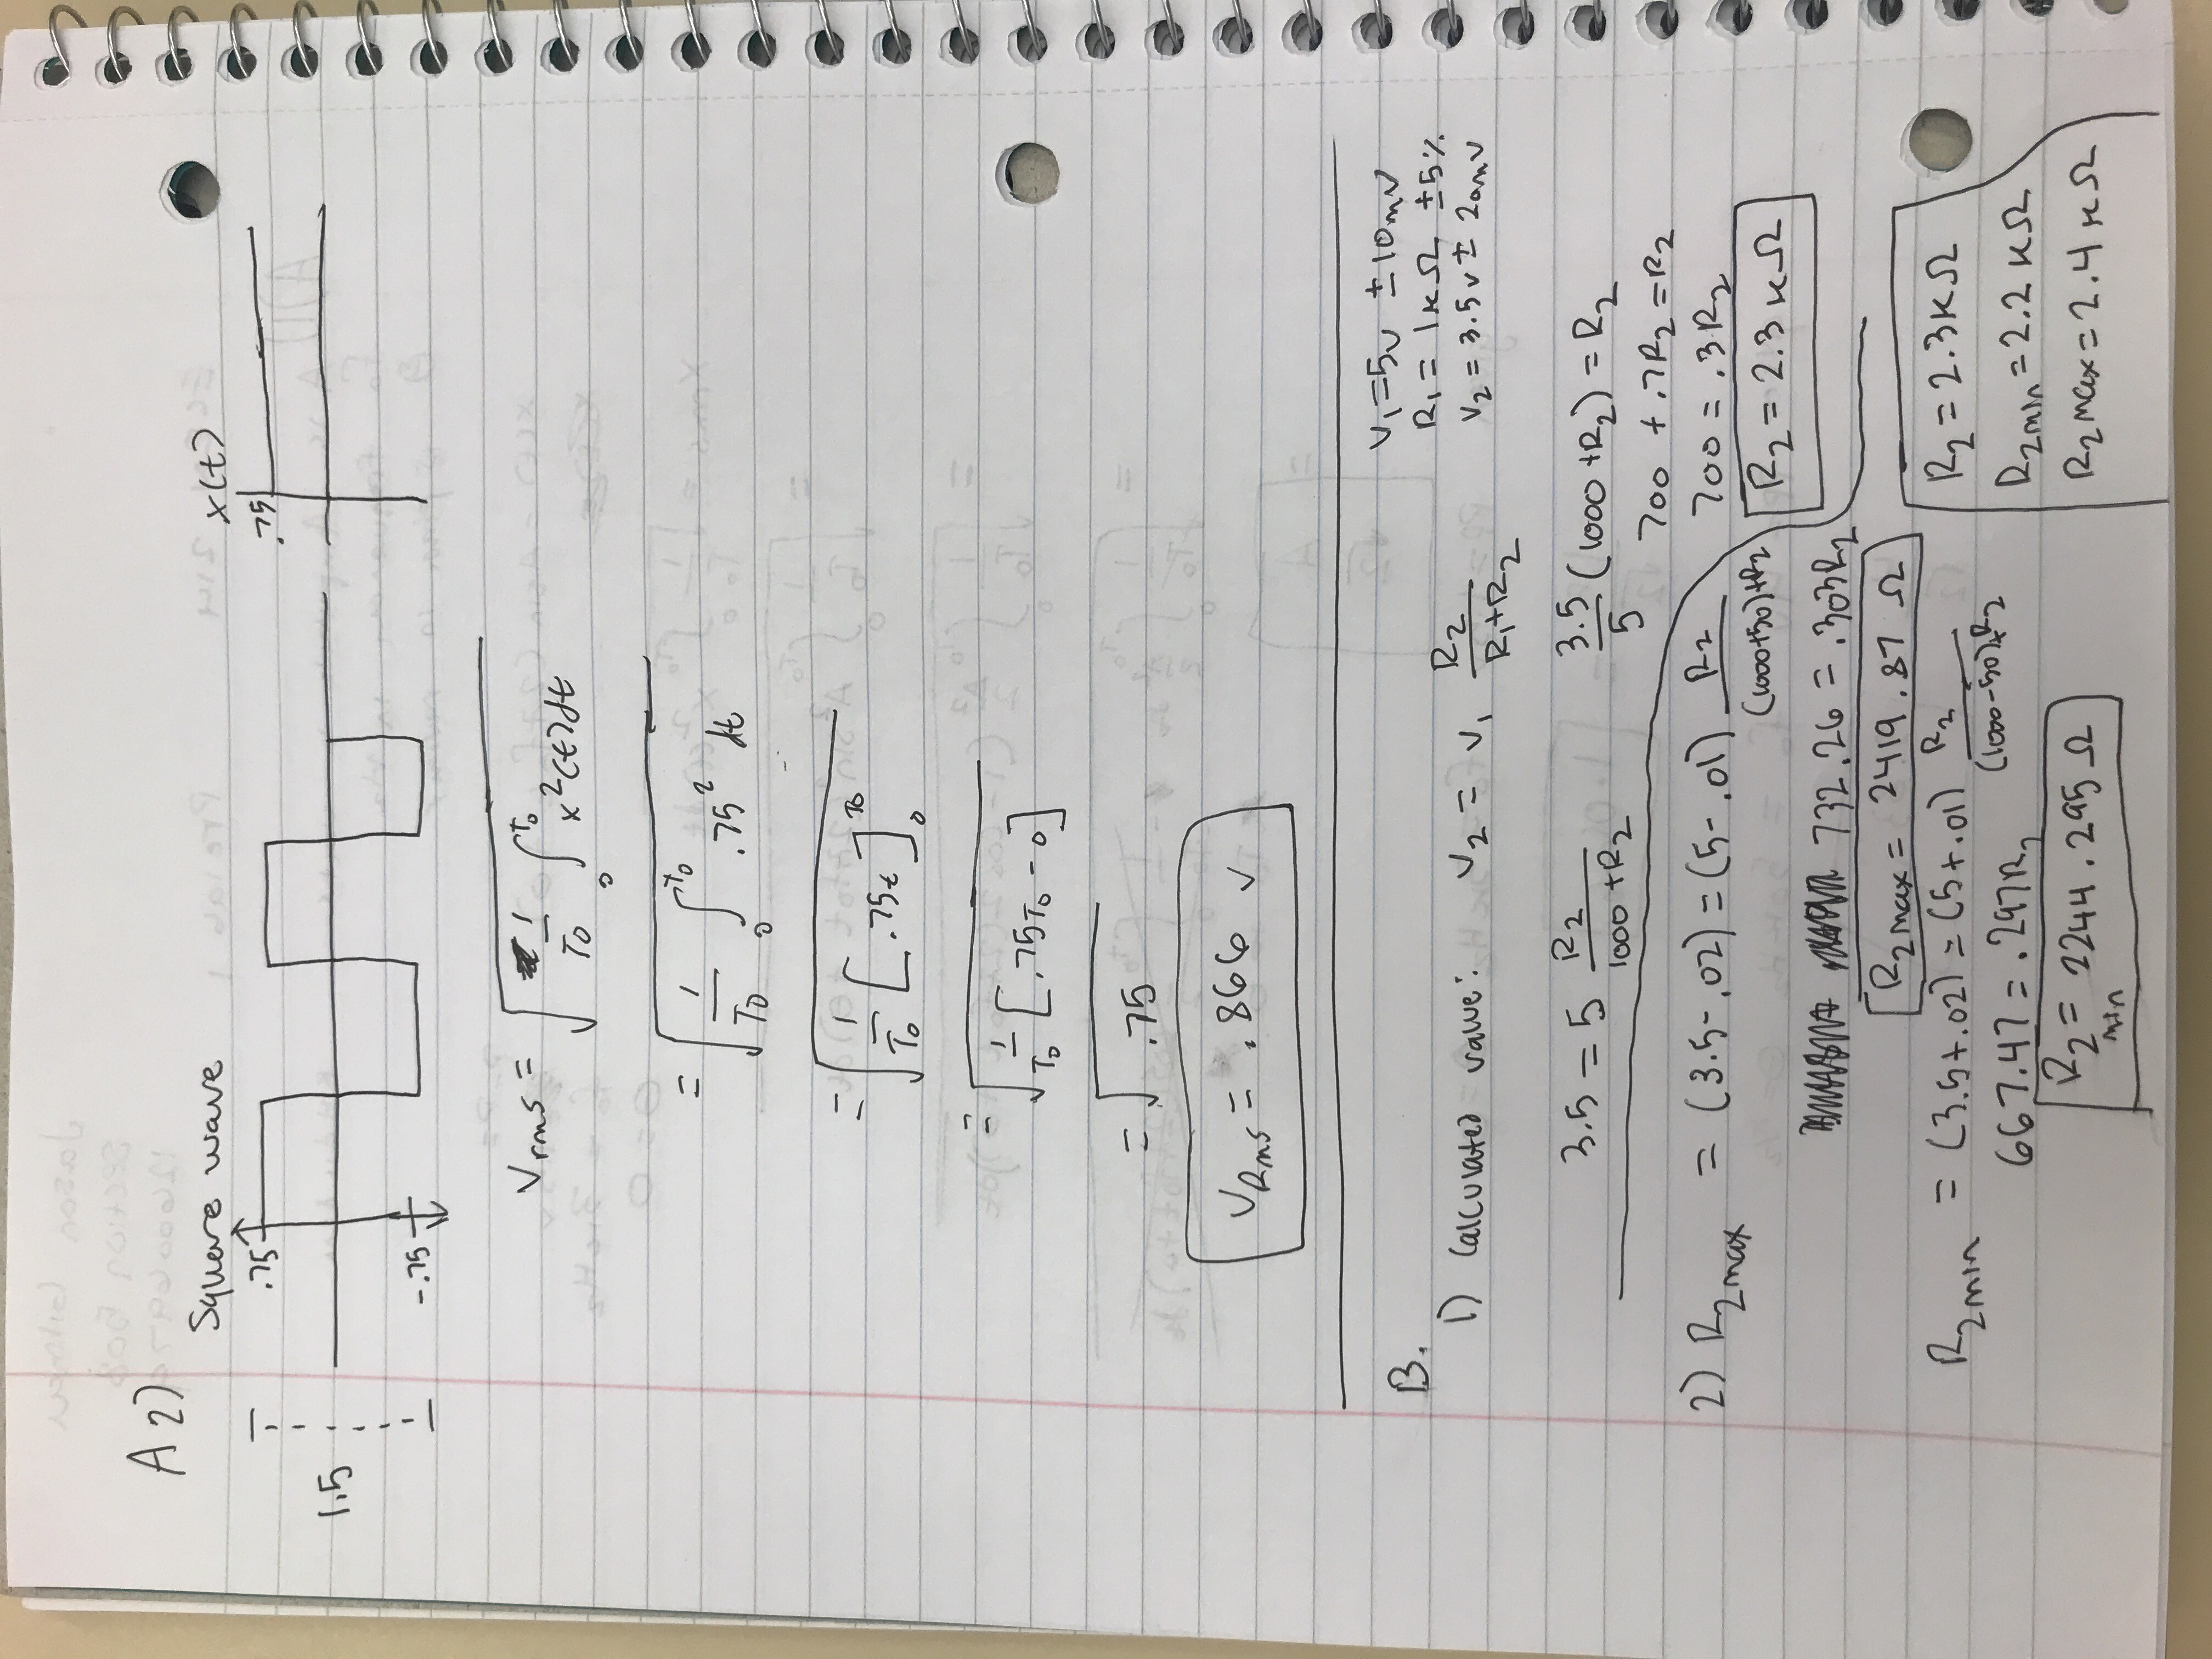 A 2)
Square wave
x(t)
.75
.75
1.5
-.75
Vrms = √ 1/T0 ∫0^T0 x²(t)dt
= √ 1/T0 ∫0^T0 .75² dt
= √ 1/T0 [.75t]0^T0
= √ 1/T0 [.75T0 - 0]
= √ .75
VRms = .866 v
V1=5v ±10mv
B.
R1 = 1kΩ ±5%
1) Calculated value: V2 = V1 R2/(R1+R2)
V2 = 3.5v ± 20mv
3.5 = 5 R2/(1000 +R2)
3.5/5 (1000 +R2) = R2
700 + .7R2 = R2
700 = .3R2
R2 = 2.3 kΩ
2) R2max = (3.5-.02) = (5-.01) R2/((1000+50)+R2)
732.26 = .303R2
R2max = 2419.87 Ω
R2min = (3.5+.02) = (5+.01) R2/((1000-50)+R2)
667.47 = .297R2
R2min = 2244.295 Ω
R2 = 2.3kΩ
R2min = 2.2 kΩ
R2max = 2.4 kΩ